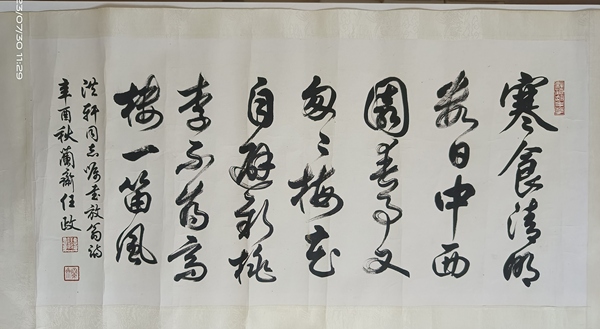 寒食清明
數日中西
園春事又
匆〻梅花
自避新桃
李不為高
樓一笛風
洪軒同志囑書放翁詩
辛酉秋蘭齋任政
23/07/30 11:29